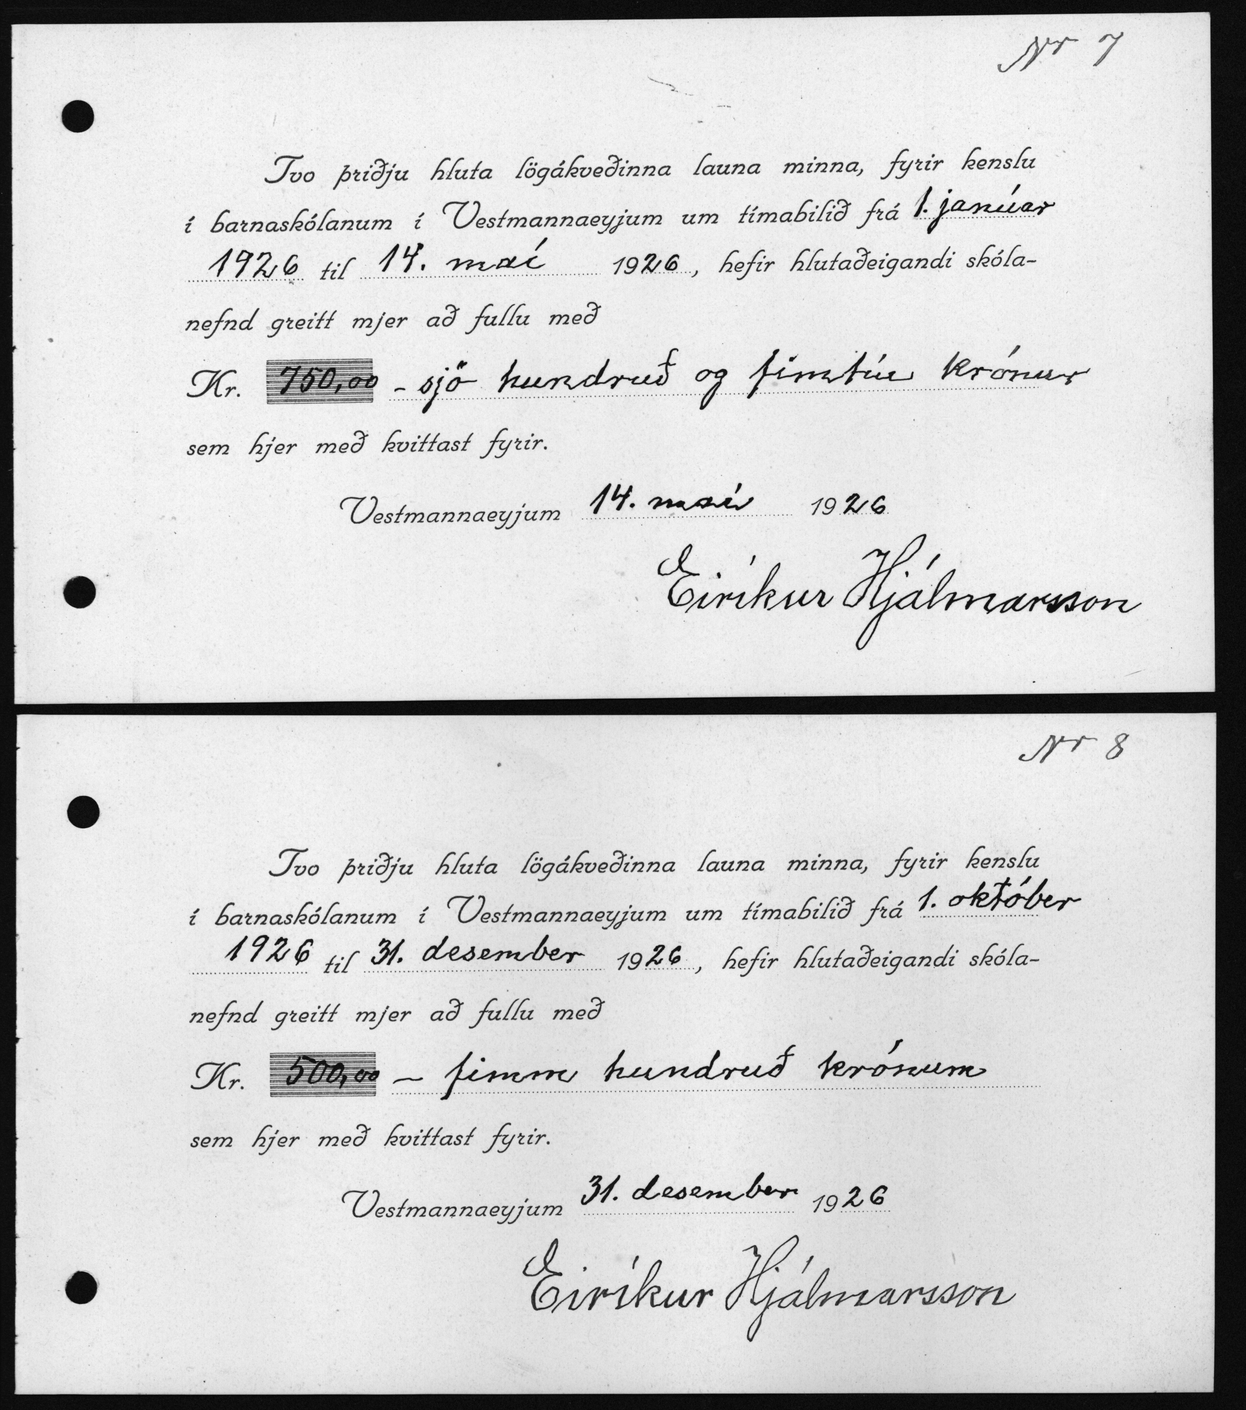 Nr 7
Tvo þriðju hluta lögákveðinna launa minna, fyrir kenslu
í barnaskólanum í Vestmannaeyjum um tímabilið frá 1. janúar
1926 til 14. maí 1926, hefir hlutaðeigandi skóla-
nefnd greitt mjer að fullu með
Kr. 750,00 - sjö hundruð og fimtíu krónur
sem hjer með kvittast fyrir.
Vestmannaeyjum 14. maí 1926
Eiríkur Hjálmarsson
Nr 8
Tvo þriðju hluta lögákveðinna launa minna, fyrir kenslu
í barnaskólanum í Vestmannaeyjum um tímabilið frá 1. október
1926 til 31. desember 1926, hefir hlutaðeigandi skóla-
nefnd greitt mjer að fullu með
Kr. 500,00 - fimm hundruð krónum
sem hjer með kvittast fyrir.
Vestmannaeyjum 31. desember 1926
Eiríkur Hjálmarsson